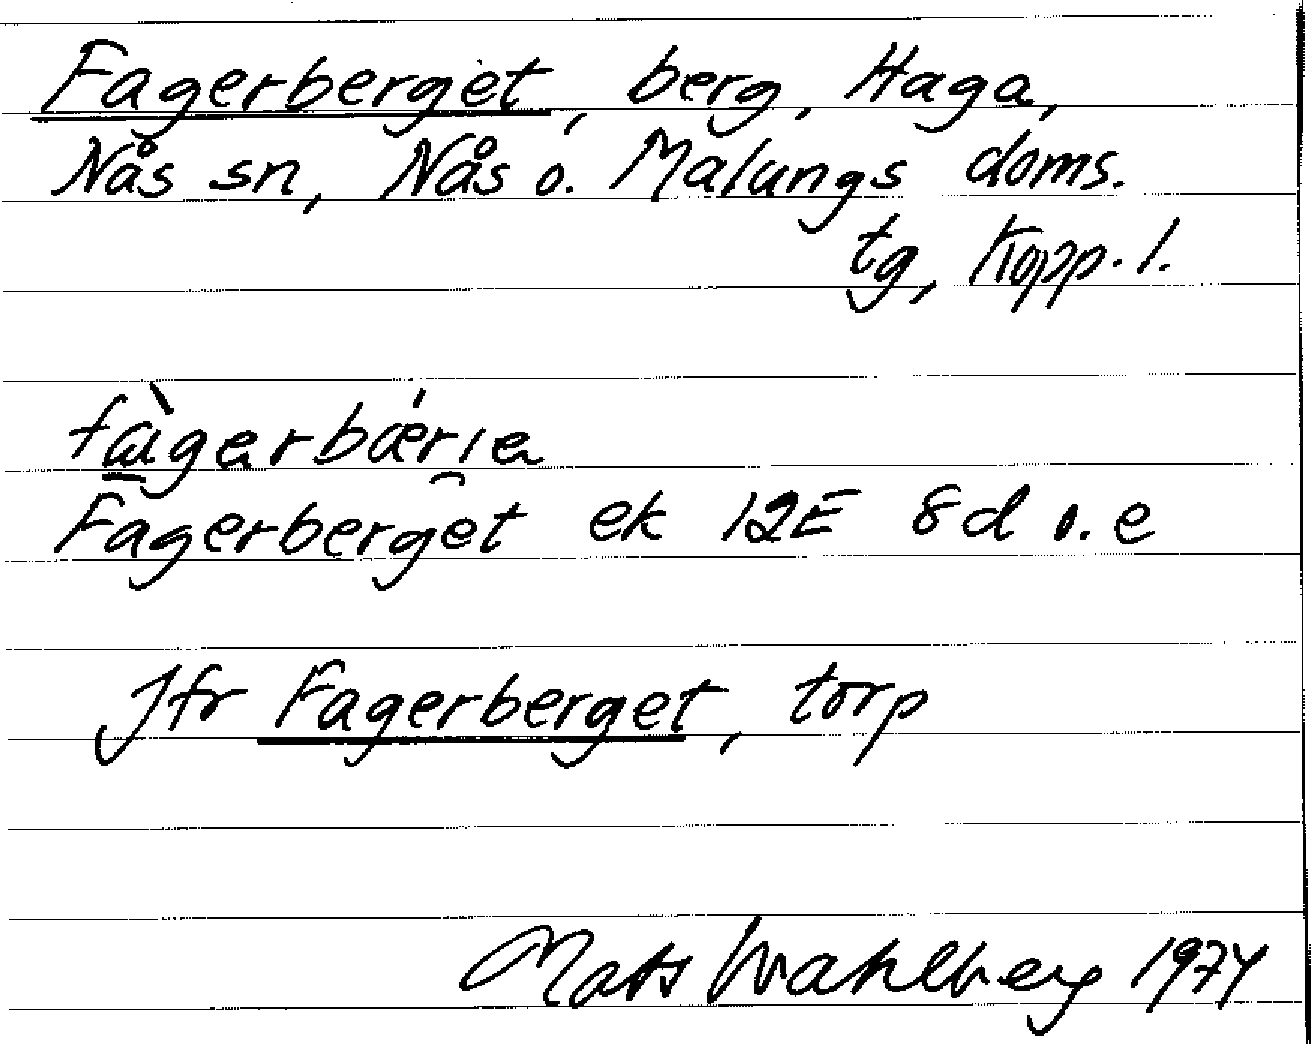 Fagerberget, berg, Haga,
Nås sn, Nås o. Malungs doms.
tg, Kopp. l.
fàgerbæŕıe
Fagerberget ek 12E 8d o. e
Jfr Fagerberget, torp
Mats Wahlberg 1974